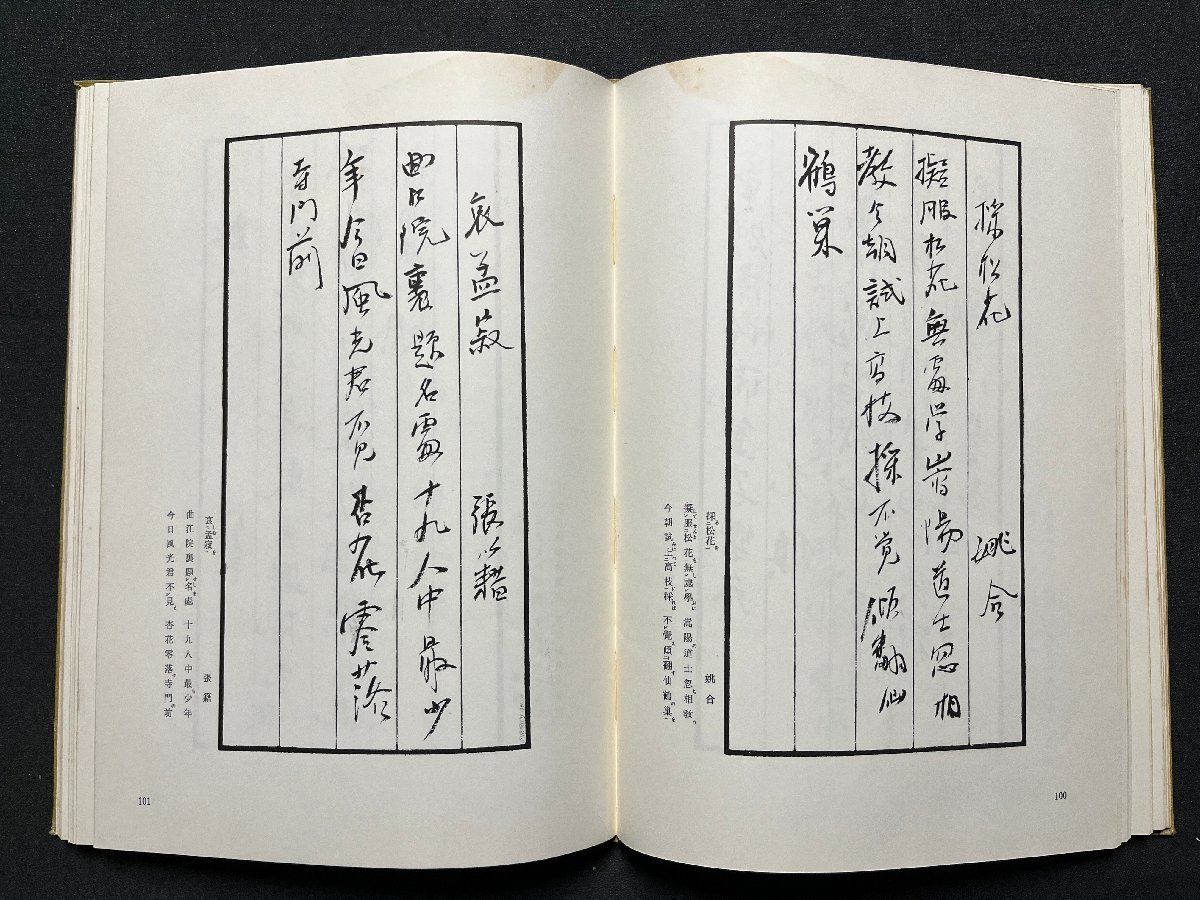 採松花　姚合
擬服松花無處学嵩陽道士忽相
教今朝試上高枝採不覚傾翻仙
鶴巣
採松花　姚合
擬服松花無處學　嵩陽道士忽相敎
今朝試上高枝採　不覺傾翻仙鶴巣
100
哀孟寂　張籍
曲江院裏題名處十九人中最少
年今日風光君不見杏花零落
寺門前
哀孟寂　張籍
曲江院裏題名處　十九人中最少年
今日風光君不見　杏花零落寺門前
101